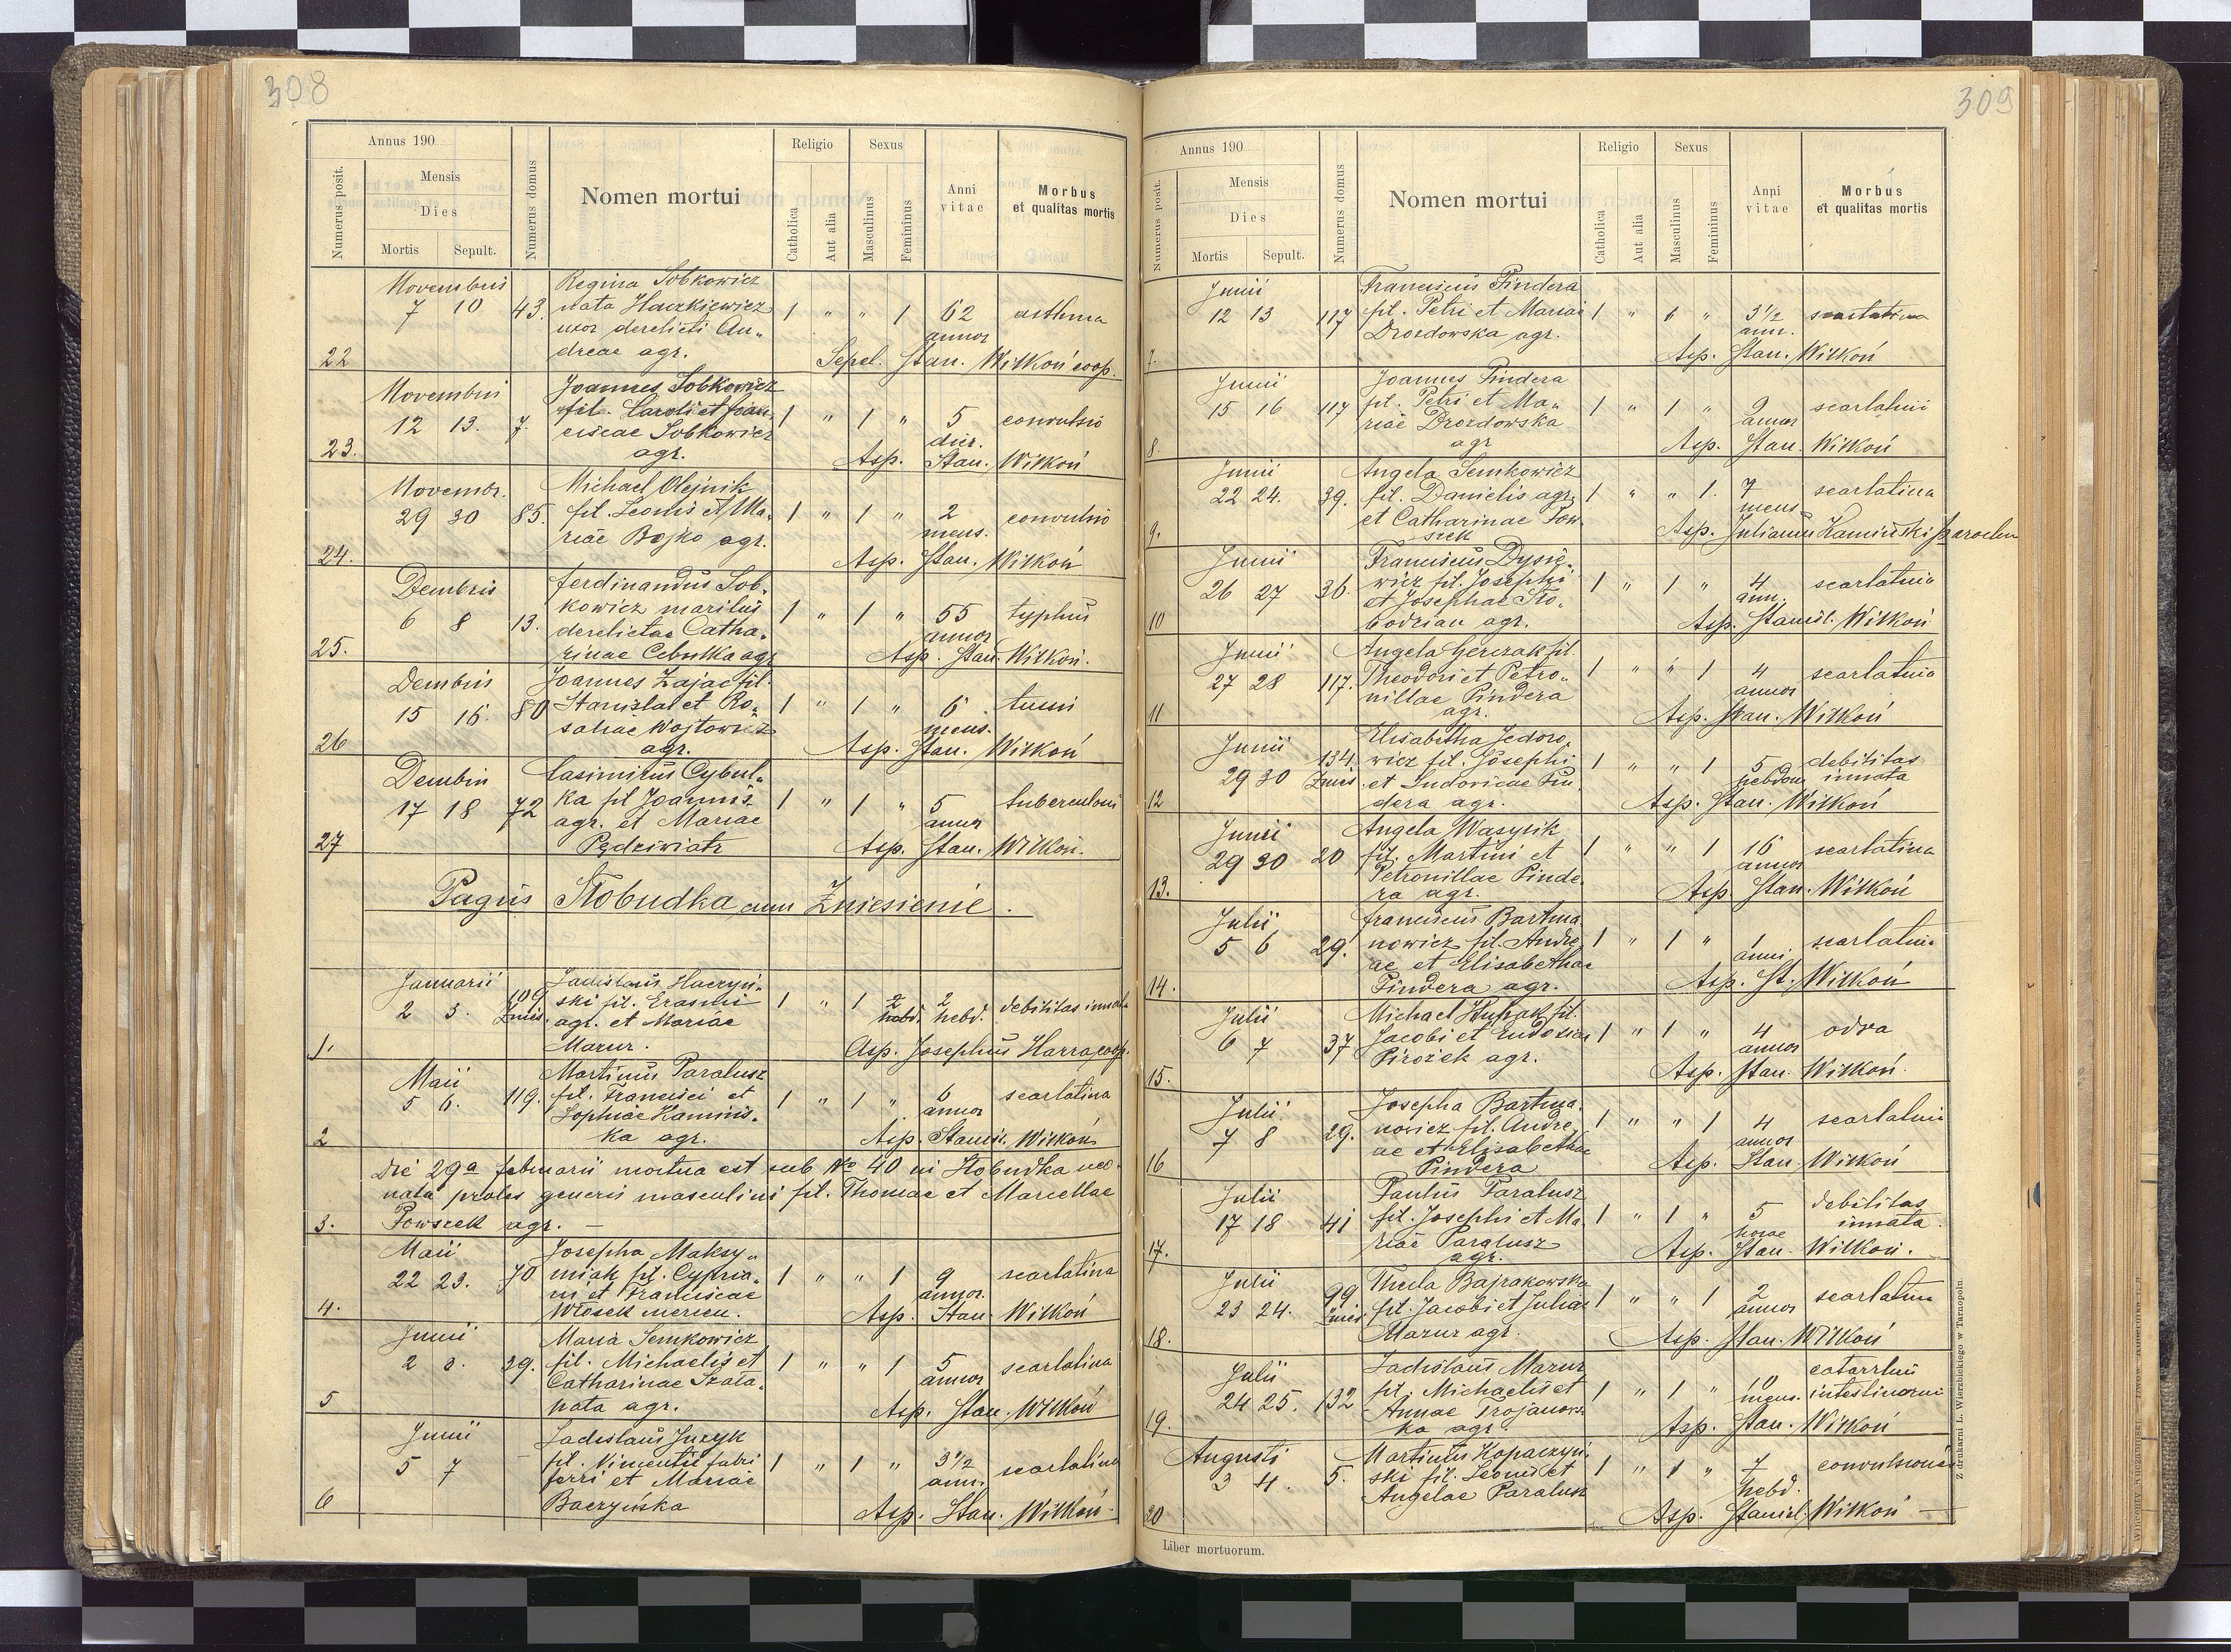 308
Annus 190
Numerus posit.
Mensis
Dies
Mortis Sepult.
Numerus domus
Nomen mortui
Religio
Catholica
Aut alia
Sexus
Masculinus
Femininus
Anni vitae
Morbus et qualitas mortis
Novembris Regina Sobkowicz
7 10 43. nata Haczkiewicz 1 " " 1 62 asthma
uxor derelicti An„ annor
22 dreae agr. Sepel. Stan. Witkoń coop.
Novembris Joannes Sobkowicz
12 13. 7. fil. Caroli et Fran„ 1 " 1 " 5 convulsio
ciscae Sobkowicz dier.
23. agr. Asp. Stan. Witkoń
Novembr. Michael Olejnik
29 30 85. fil. Leonis et Ma„ 1 " 1 " 2 convulsio
riae Bojko agr. mens.
24. Asp. Stan. Witkoń
Dembris Ferdinandus Sob„
6 8 13. kowicz maritus 1 " 1 " 55 typhus
derelictae Catha„ annor
25. rinae Cebulka agr Asp. Stan. Witkoń.
Dembris Joannes Zajac fil.
15 16. 80 Stanislai et Ro„ 1 " 1 " 6 tussi
saliae Wojtowicz mens.
26 agr. Asp. Stan. Witkoń
Dembris Casimirus Cybul„
17 18 72 ka fil Joannis 1 " 1 " 5 tuberculosis
agr. et Mariae annor
27 Pędziwiatr Asp. Stan. Witkoń.
Pagus Słobudka cum Zniesienie.
Januarii Ladislaus Haczyń„
2 3. 109 Znies. ski fil. Erasmi 1 " 1 2 hebd. 2 hebd. debilitas innata
agr. et Mariae
1. Mazur. Asp. Josephus Harra coop.
Maii Martinus Paralusz
5 6. 119. fil. Francisci et 1 " 1 " 6 scarlatina
Sophiae Kamińs„ annor
2 ka agr. Asp. Stanisl. Witkoń
Die 29a februarii mortua est sub No 40 in Słobudka neo„
nata proles generis masculini fil. Thomae et Marcellae
3. Powszek agr. —
Maii Josepha Maksy„
22 23. 70 miak fil. Cypria„ 1 " " 1 9 scarlatina
ni et Franciscae annor.
4. Włosek mercen. Asp. Stan. Witkoń
Junii Maria Semkowicz
2 3. 39. fil. Michaelis et 1 " " 1 5 scarlatina
Catharinae Szala„ annor
5 pata agr. Asp. Stan. Witkoń
Junii Ladislaus Juzyk
5 7 – fil. Vincentii fabri 1 " 1 " 3½ scarlatina
ferri et Mariae anni
6 Baczyńska Asp. Stan. Witkoń
309
Annus 190
Numerus posit.
Mensis
Dies
Mortis Sepult.
Numerus domus
Nomen mortui
Religio
Catholica
Aut alia
Sexus
Masculinus
Femininus
Anni vitae
Morbus et qualitas mortis
Junii Franciscus Pindera
12 13 117 fil. Petri et Mariae 1 " 1 " 3½ scarlatina
Drozdowska agr. ann.
7. Asp. Stan. Witkoń
Junii Joannes Pindera
15 16 117 fil. Petri et Ma„ 1 " 1 " 9 scarlatini
riae Drozdowska annor
8. agr Asp. Stan. Witkoń
Junii Angela Semkowicz
22 24. 39. fil. Danielis agr. 1 " " 1. 7 scarlatina
et Catharinae Pow„ mens
9. szek Asp. Julianus Kamiński parochu
Junii Franciscus Dysie„
26 27 36. wicz fil. Josephi 1 " 1 " 4 scarlatina
et Josephae Sło„ ann.
10 bodzian agr. Asp. Stanisl. Witkoń
Junii Angela Gerczak fil.
27 28 117. Theodori et Petro„ 1 " " 1 4 scarlatina
nillae Pindera annor
11 agr. Asp. Stan. Witkoń
Junii Elisabetha Fedoro„
29 30 134 Znies. wicz fil. Josephi 1 " " 1 5 debilitas
et Ludovicae Pin„ hebdom innata
12 dera agr. Asp. Stan. Witkoń
Junii Angela Wasylik
29 30 20 fil. Martini et 1 " " 1 16 scarlatina
Petronillae Pinde„ annor
13. ra agr. Asp. Stan. Witkoń
Julii Franciscus Bartma
5 6 29. nowicz fil. Andre„ 1 " 1 " 1 scarlatina
ae et Elisabethae anni
14. Pindera agr. Asp. St. Witkoń
Julii Michael Hupak fil.
6 7 37 Jacobi et Eudoxiae 1 " 1 " 4 odra
Pirożek agr. annor
15. Asp. Stan. Witkoń.
Julii Josepha Bartma„
7 8 29. nowicz fil. Andre„ 1 " " 1 4 scarlatini
ae et Elisabethae annor
16 Pindera Asp. Stan. Witkoń
Julii Paulus Paralusz
17 18 41 fil. Josephi et Ma„ 1 " 1 " 5 debilitas
riae Paralusz horae innata.
17. agr. Asp. Stan. Witkoń.
Julii Thecla Bajrakowska
23 24. 99 Znies. fil. Jacobi et Juliae 1 " " 1 2 scarlatina
Mazur agr. annor
18. Asp. Stan. Witkoń
Julii Ladislaus Mazur catarrhus
24 25. 132 fil. Michaelis et 1 " 1 " 10 intestinorum
Annae Trojanows„ mens.
19. ka agr. Asp. Stan. Witkoń
Augusti Martinus Kopaczyń„
3 4. 5. ski fil. Leonis et 1 " 1 " 7 convulsiones
Angelae Paralusz hebd.
20 Asp. Stanisl. Witkoń —
Liber mortuorum.
Z drukarni L. Wierzbickiego w Tarnopolu.